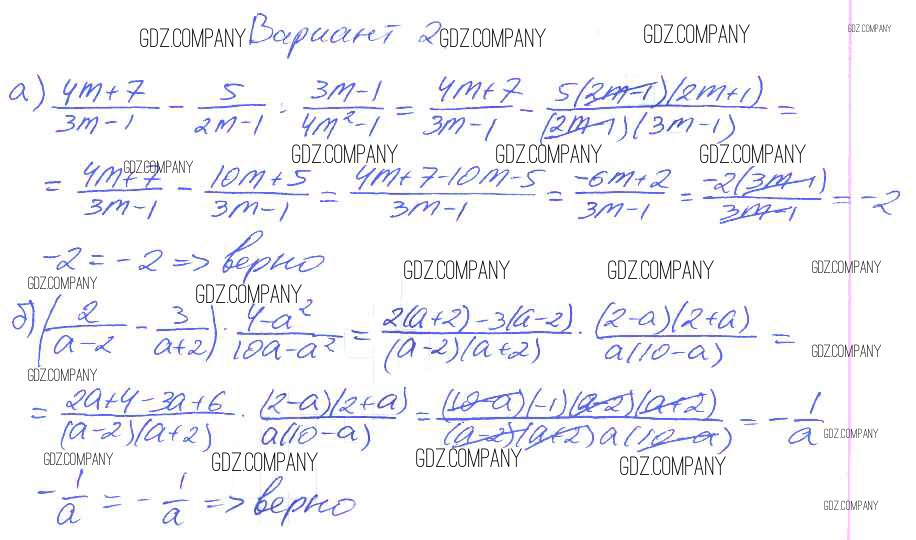 GDZ.COMPANY Вариант 2 GDZ.COMPANY GDZ.COMPANY GDZ.COMPANY
а) (4m+7)/(3m-1) - 5/(2m-1) : (3m-1)/(4m²-1) = (4m+7)/(3m-1) - (5(2m-1)(2m+1))/((2m-1)(3m-1)) =
GDZ.COMPANY GDZ.COMPANY GDZ.COMPANY GDZ.COMPANY
= (4m+7)/(3m-1) - (10m+5)/(3m-1) = (4m+7-10m-5)/(3m-1) = (-6m+2)/(3m-1) = (-2(3m-1))/(3m-1) = -2
-2 = -2 => верно
GDZ.COMPANY GDZ.COMPANY GDZ.COMPANY GDZ.COMPANY GDZ.COMPANY
б) (2/(a-2) - 3/(a+2)) · (4-a²)/(10a-a²) = (2(a+2)-3(a-2))/((a-2)(a+2)) · ((2-a)(2+a))/(a(10-a)) =
GDZ.COMPANY GDZ.COMPANY
= (2a+4-3a+6)/((a-2)(a+2)) · ((2-a)(2+a))/(a(10-a)) = ((10-a)(-1)(a-2)(a+2))/((a-2)(a+2)a(10-a)) = -1/a
GDZ.COMPANY GDZ.COMPANY GDZ.COMPANY GDZ.COMPANY GDZ.COMPANY
-1/a = -1/a => верно
GDZ.COMPANY